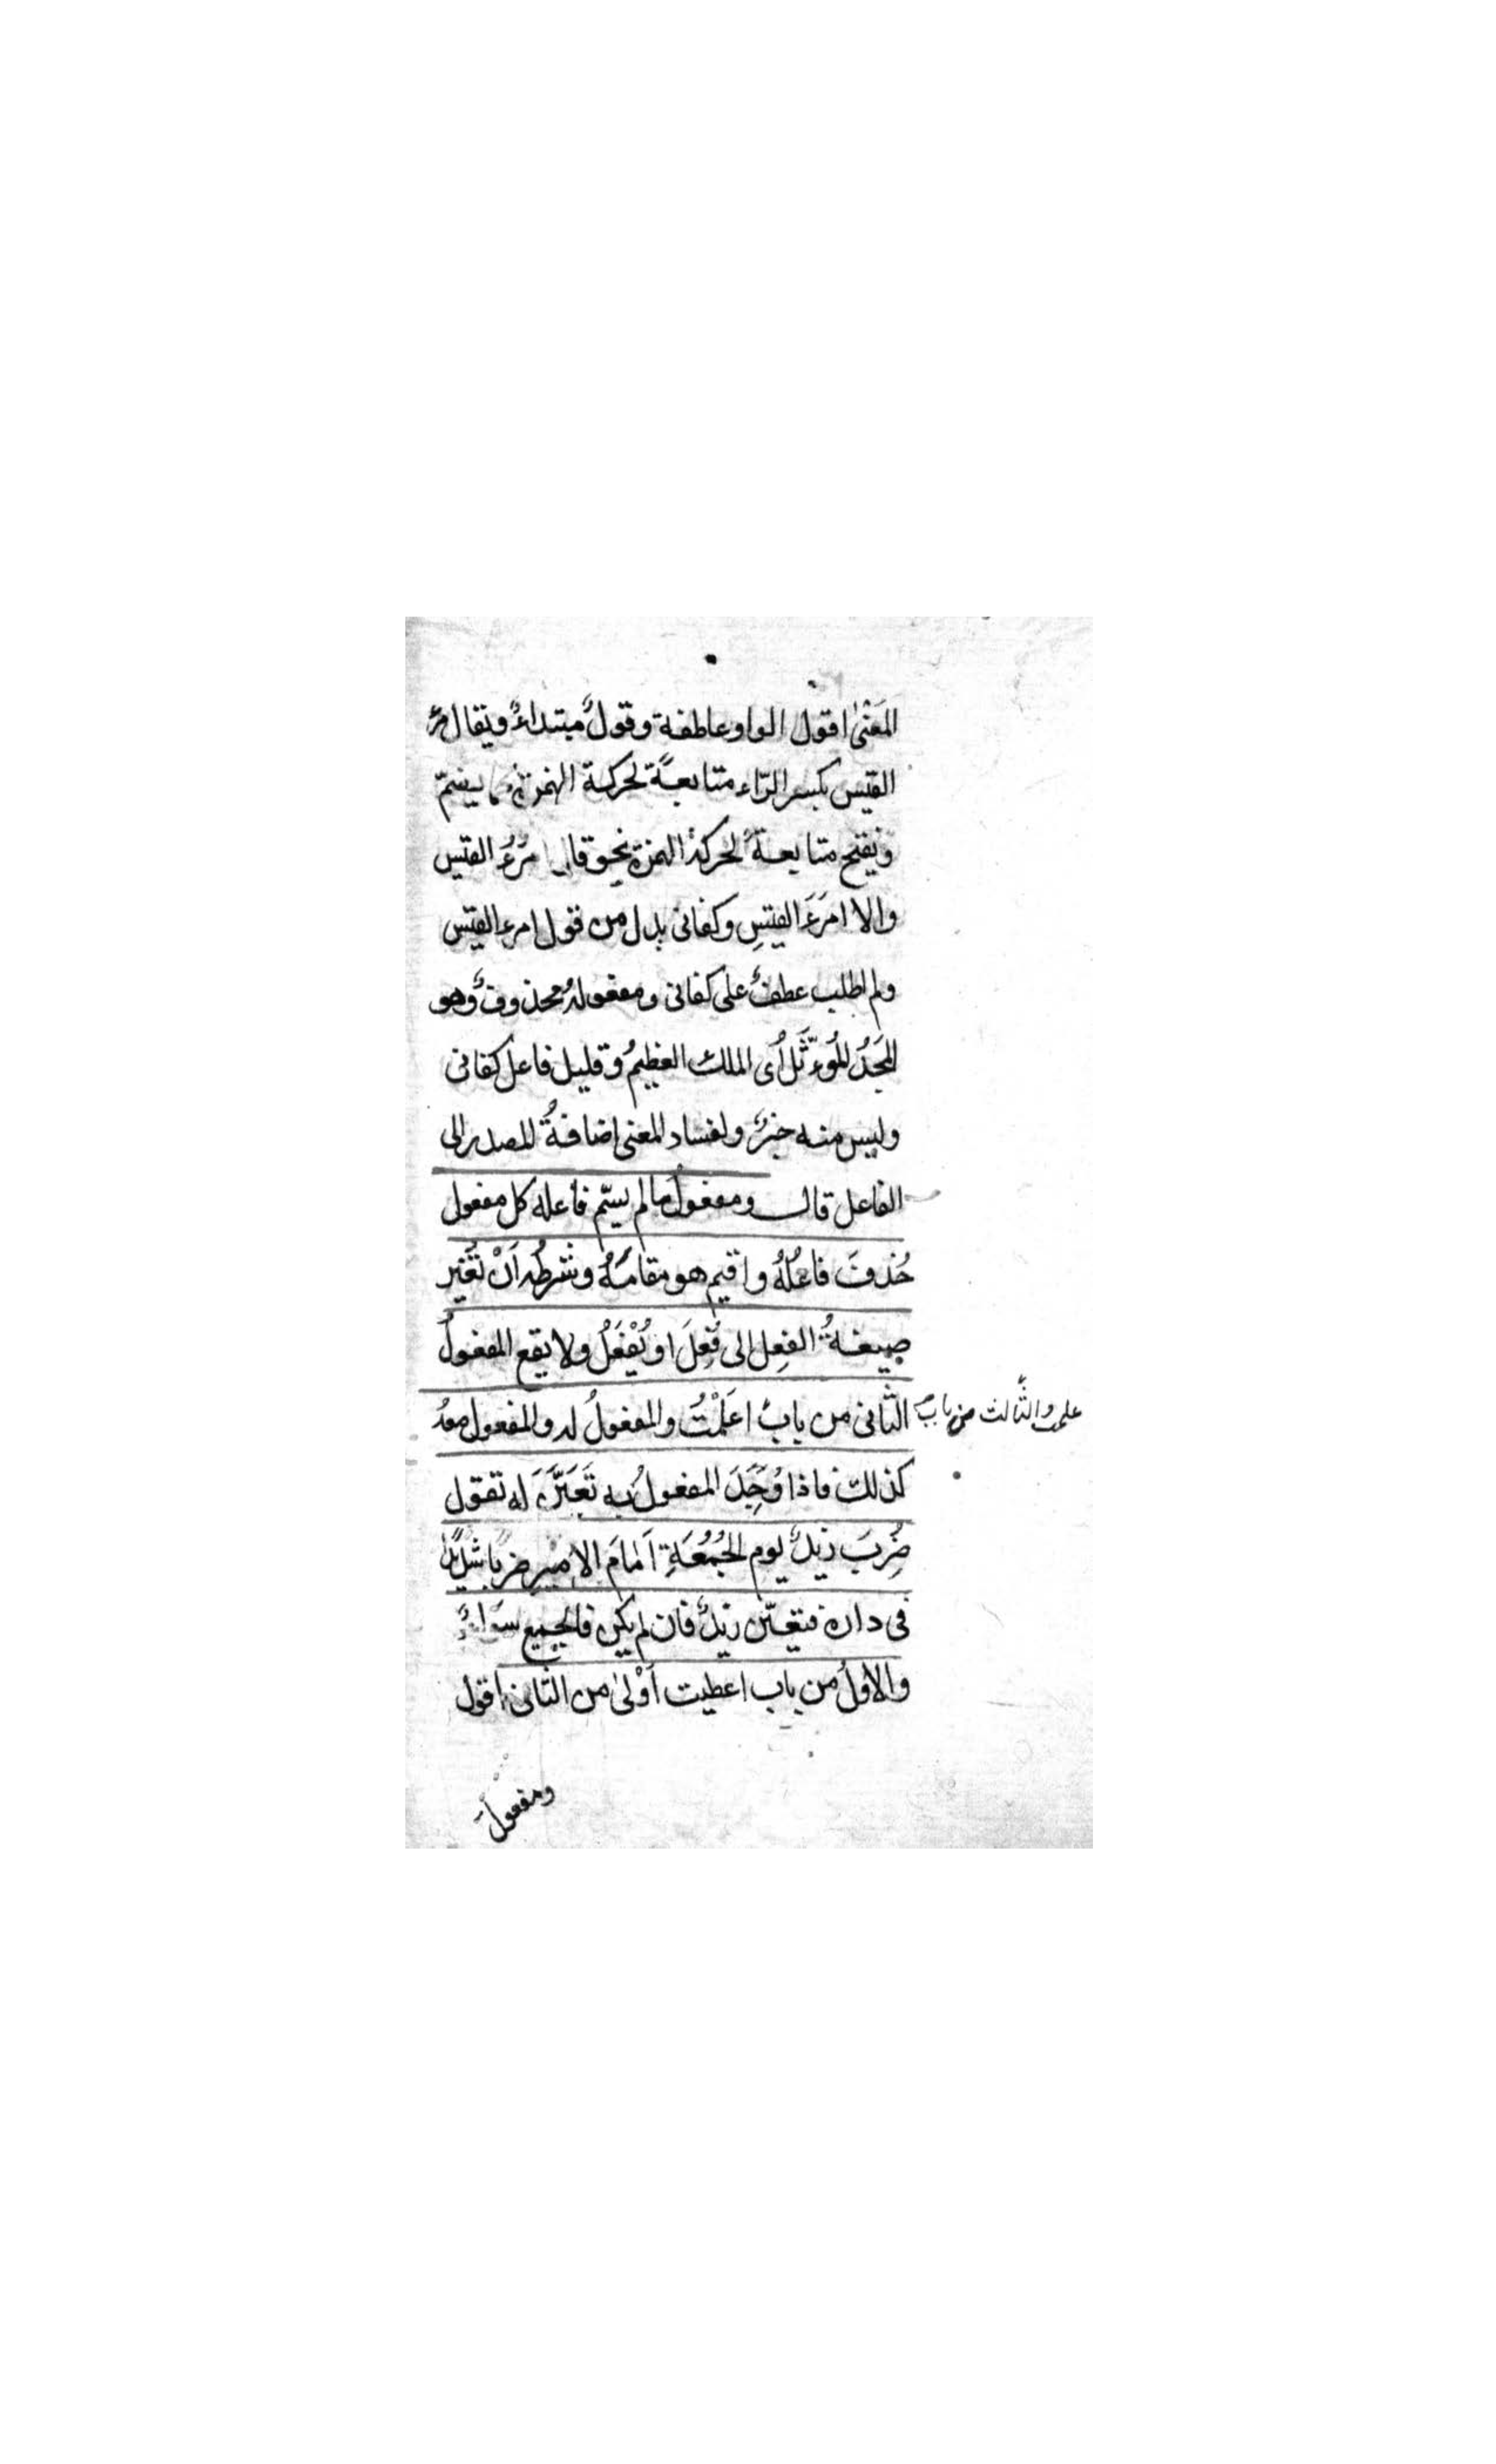 المَعْنٰى اقول الواو عاطفة وقولٌ مبتداءٌ ويقال مرِءِ
القيس بكسر الرّاء متابعةً لحركة الهمزة كما يضمّ
ويفتح متابعةً لحركة الهمزة نحو قال امرُءُ القيس
والا امرَءَ القيسِ وكفانى بدل من قول امرء القيس
ولم اطلب عطفٌ على كفانى ومفعولهُ محذوفٌ وهو
المجدُ المُوءَثَّلُ اى الملك العظيمُ وقليل فاعل كفانى
وليس منه خبرٌ ولفساد المعنى اضافةُ المصدر الى
الفاعل قال ومفعولُ ما لم يسّم فاعله كل مفعول
حُذفَ فاعلُهُ واقيم هو مقامَهُ وشرطُه اَنْ تُغير
صيغةُ الفِعل الى فُعِلَ او يُفْعَلُ ولا يقع المفعولُ
الثانى من باب علمت والثالث من باب اعلمْتُ والمفعولُ له والمفعول معهُ
كذلك فاذا وُجِدَ المفعولُ به تَعَيَّنَ له تقول
ضُرِبَ زيدٌ يوم الجُمُعَةِ اَمامَ الاميرِ ضرباً شديداً
فى داره فتعيّن زيدٌ فان لم يكن فالجميع سَواءٌ
والاولُ من باب اعطيت اَوْلىٰ من الثانى اقول
ومفعول